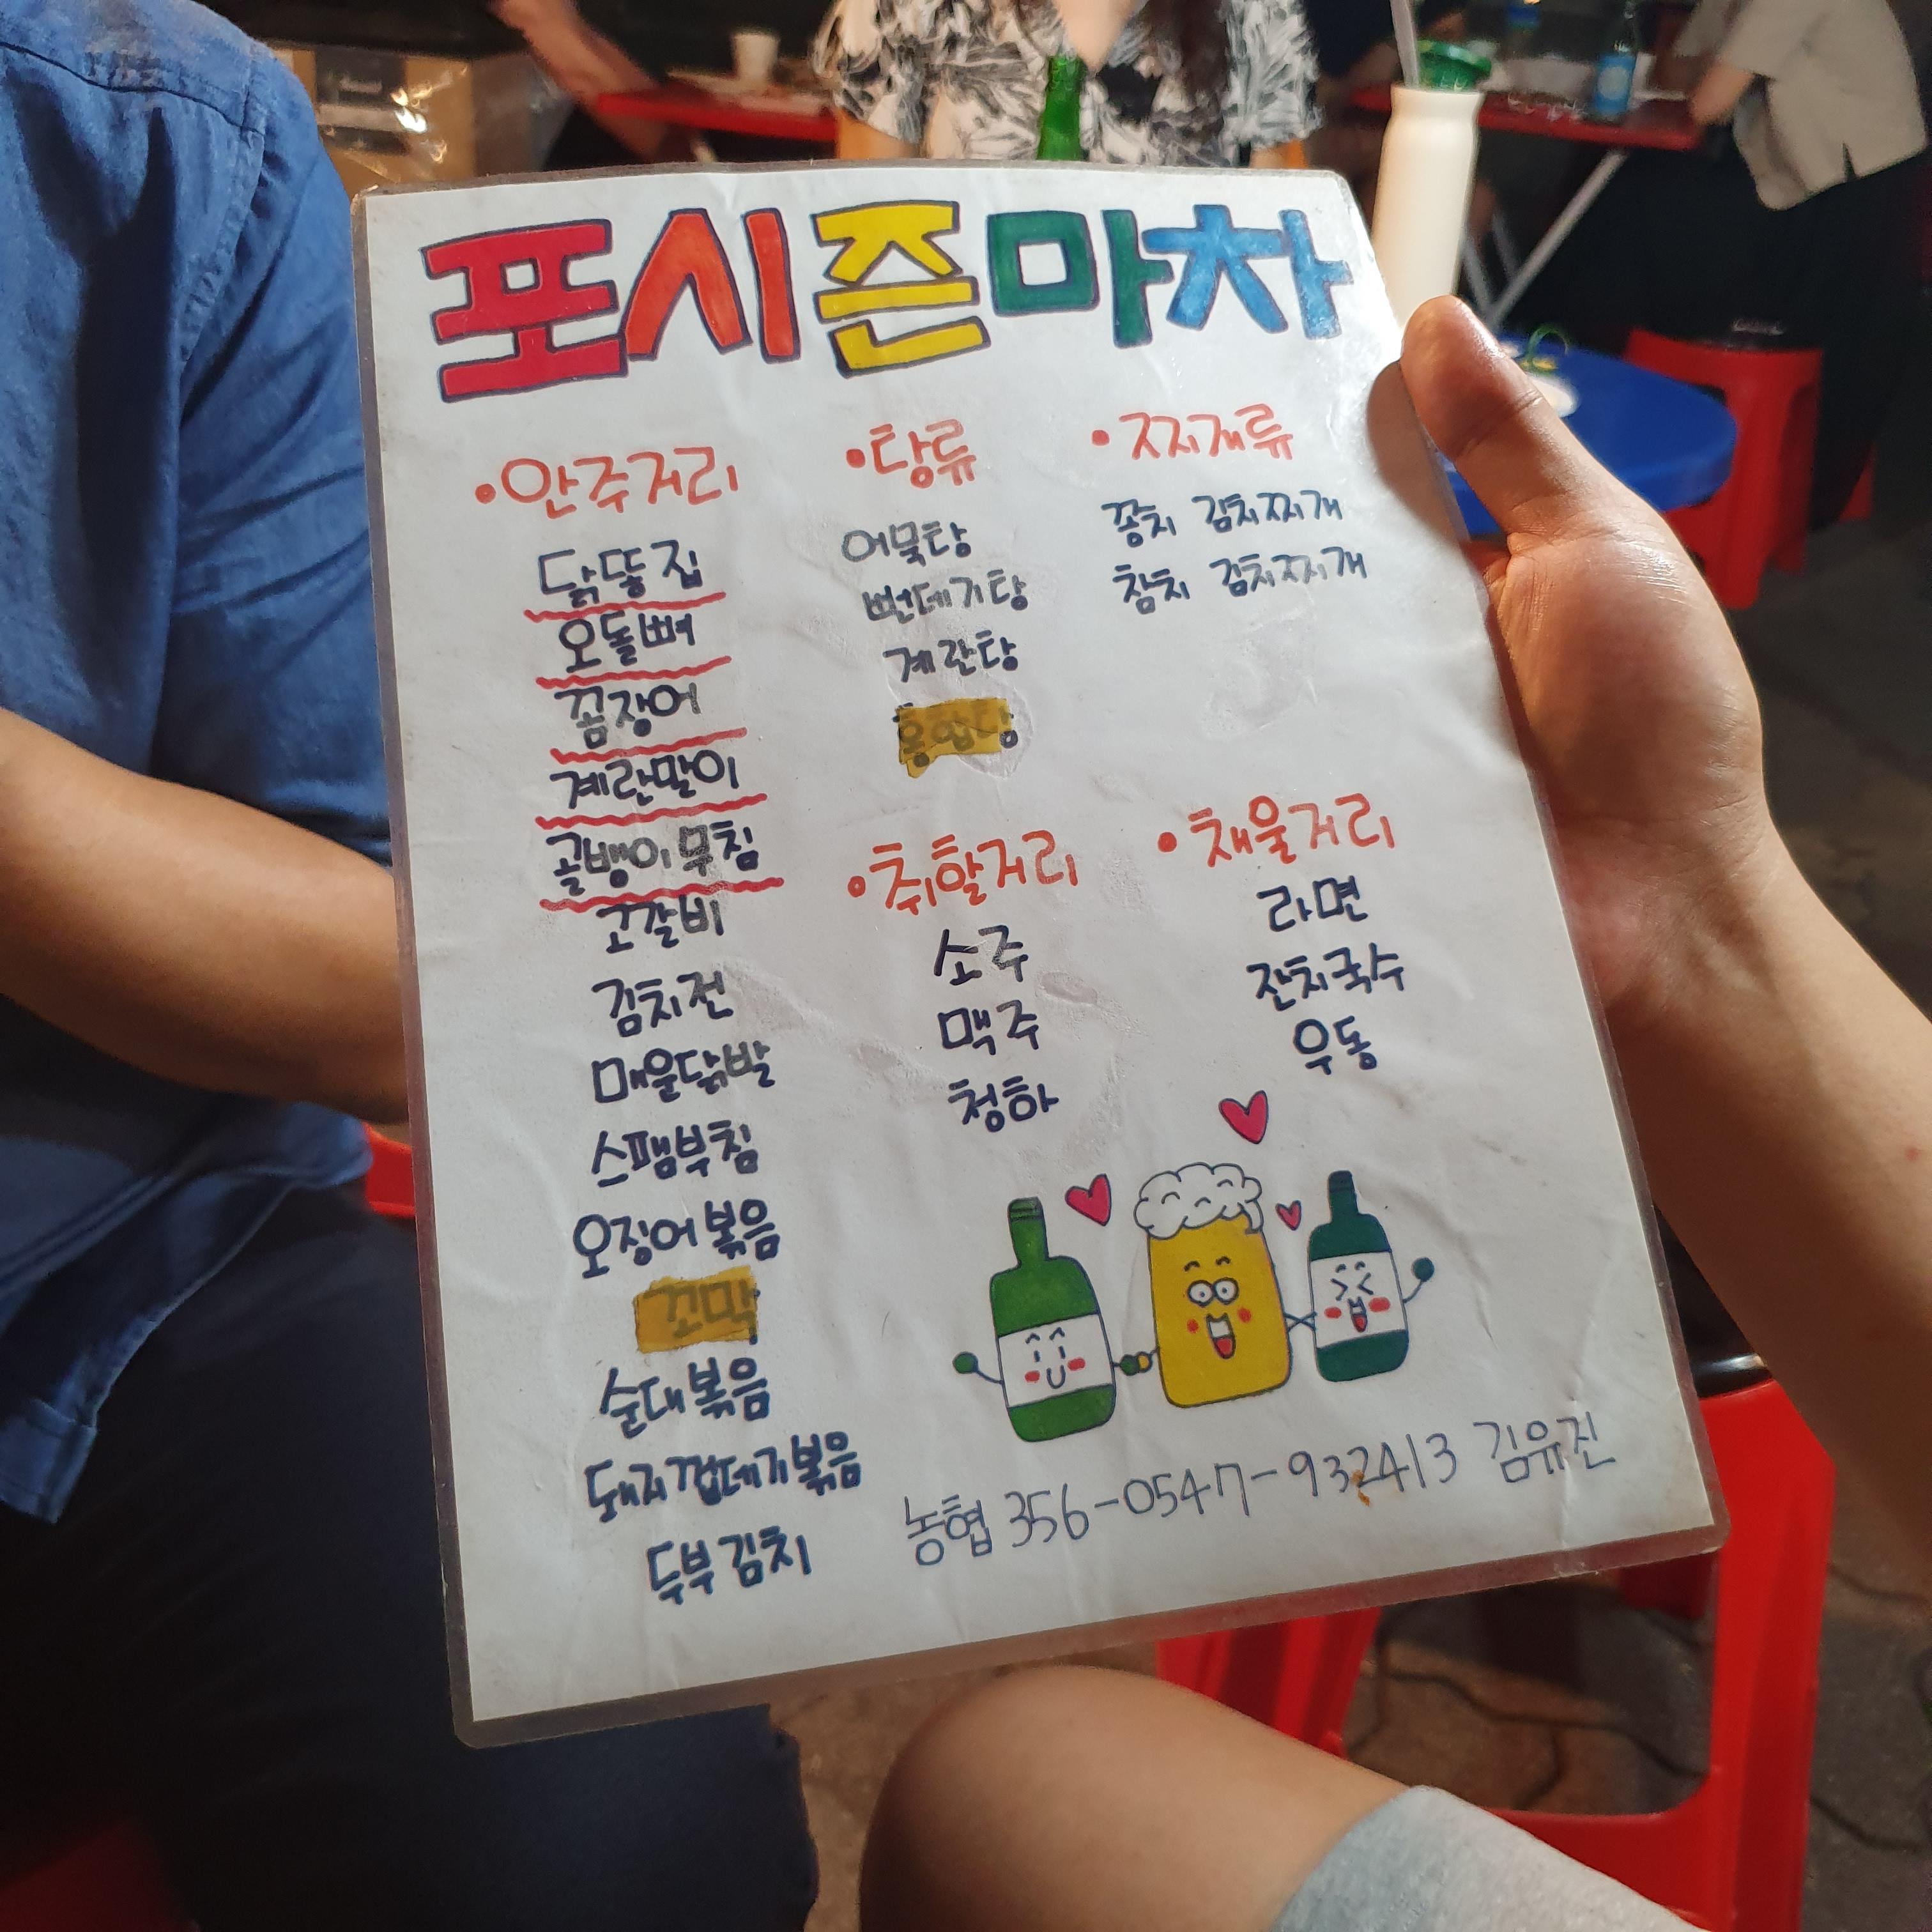 포시즌마차
• 안주거리
닭똥집
오돌뼈
꼼장어
계란말이
골뱅이무침
고갈비
김치전
매운닭발
스팸부침
오징어볶음
꼬막
순대볶음
돼지껍데기볶음
두부김치
• 탕류
어묵탕
뻔데기탕
계란탕
홍합탕
• 찌개류
꽁치 김치찌개
참치 김치찌개
• 취할거리
소주
맥주
청하
• 채울거리
라면
잔치국수
우동
농협 356-0547-932413 김유진